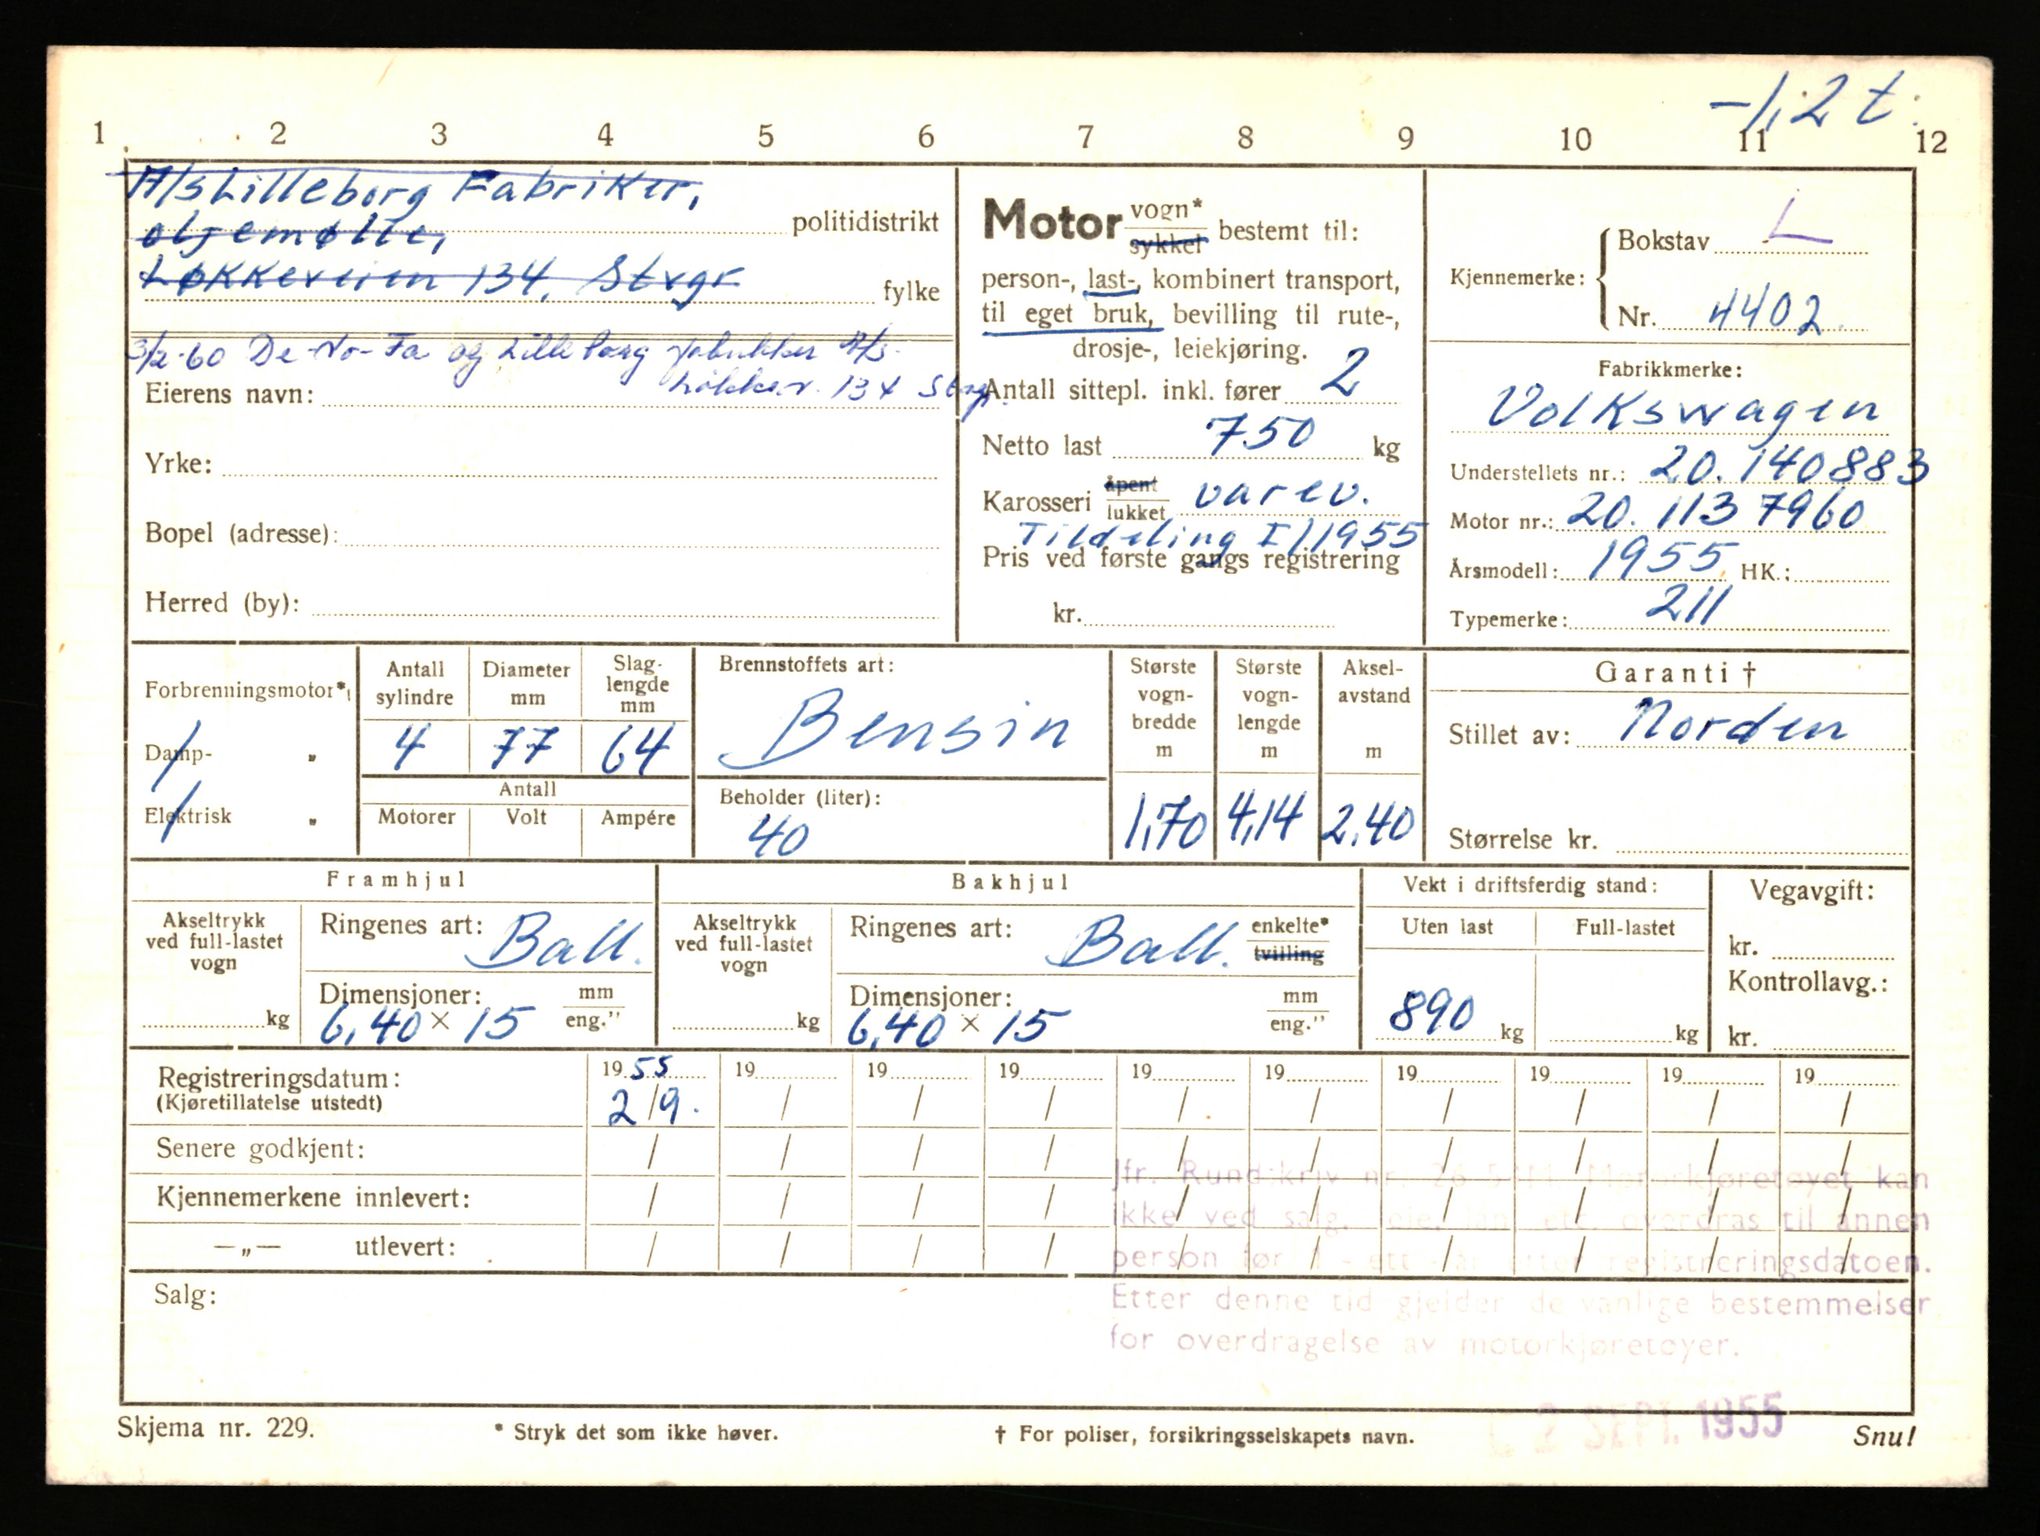 -1,2 t.
1 2 3 4 5 6 7 8 9 10 11 12
A/S Lilleborg Fabriker,
oljemølle, politidistrikt
Løkkeveien 134, Stvgr fylke
3/2-60 De-No-Fa og Lilleborg fabrikker A/S.
Løkkev. 134 Stvgr.
Eierens navn:
Yrke:
Bopel (adresse):
Herred (by):
Motor vogn* sykkel bestemt til:
person-, last-, kombinert transport,
til eget bruk, bevilling til rute-,
drosje-, leiekjøring.
Antall sittepl. inkl. fører 2
Netto last 750 kg
Karosseri åpent lukket varev.
Tildeling I/1955
Pris ved første gangs registrering
kr.
Kjennemerke: Bokstav L
Nr. 4402
Fabrikkmerke:
Volkswagen
Understellets nr.: 20.140883
Motor nr.: 20.1137960
Årsmodell: 1955 HK.:
Typemerke: 211
Forbrenningsmotor*
Damp- "
Elektrisk "
Antall sylindre
4
Diameter mm
77
Slag-lengde mm
64
Antall
Motorer Volt Ampére
Brennstoffets art:
Bensin
Beholder (liter):
40
Største vogn-bredde m
1,70
Største vogn-lengde m
4,14
Aksel-avstand m
2.40
Garanti †
Stillet av: Norden
Størrelse kr.
Framhjul
Akseltrykk
ved full-lastet
vogn
kg
Ringenes art: Ball.
Dimensjoner: mm
6,40 × 15 eng."
Bakhjul
Akseltrykk
ved full-lastet
vogn
kg
Ringenes art: Ball. enkelte* tvilling
Dimensjoner: mm
6,40 × 15 eng."
Vekt i driftsferdig stand:
Uten last Full-lastet
890 kg kg
Vegavgift:
kr.
Kontrollavg.:
kr.
Registreringsdatum: 1955 19 19 19 19 19 19 19 19 19
(Kjøretillatelse utstedt) 2/9. / / / / / / / / /
Senere godkjent: / / / / / / / / / /
Kjennemerkene innlevert: / / / / / / / / / /
—„— utlevert: / / / / / / / / / /
Salg:
Jfr. Rundskriv nr. Motorkjøretøyet kan
ikke ved salg, leie, lån etc. overdras til annen
person før 1 - ett - år etter registreringsdatoen.
Etter denne tid gjelder de vanlige bestemmelser
for overdragelse av motorkjøretøyer.
2 SEPT. 1955
Skjema nr. 229.
* Stryk det som ikke høver.
† For poliser, forsikringsselskapets navn.
Snu!